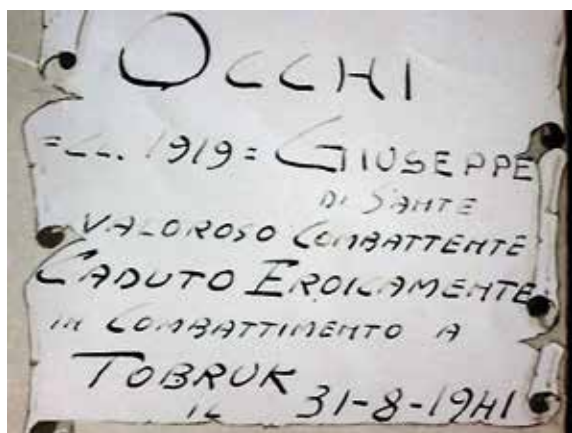 OCCHI
=CL. 1919= GIUSEPPE
DI SANTE
VALOROSO COMBATTENTE
CADUTO EROICAMENTE
IN COMBATTIMENTO A
TOBRUK
IL 31-8-1941